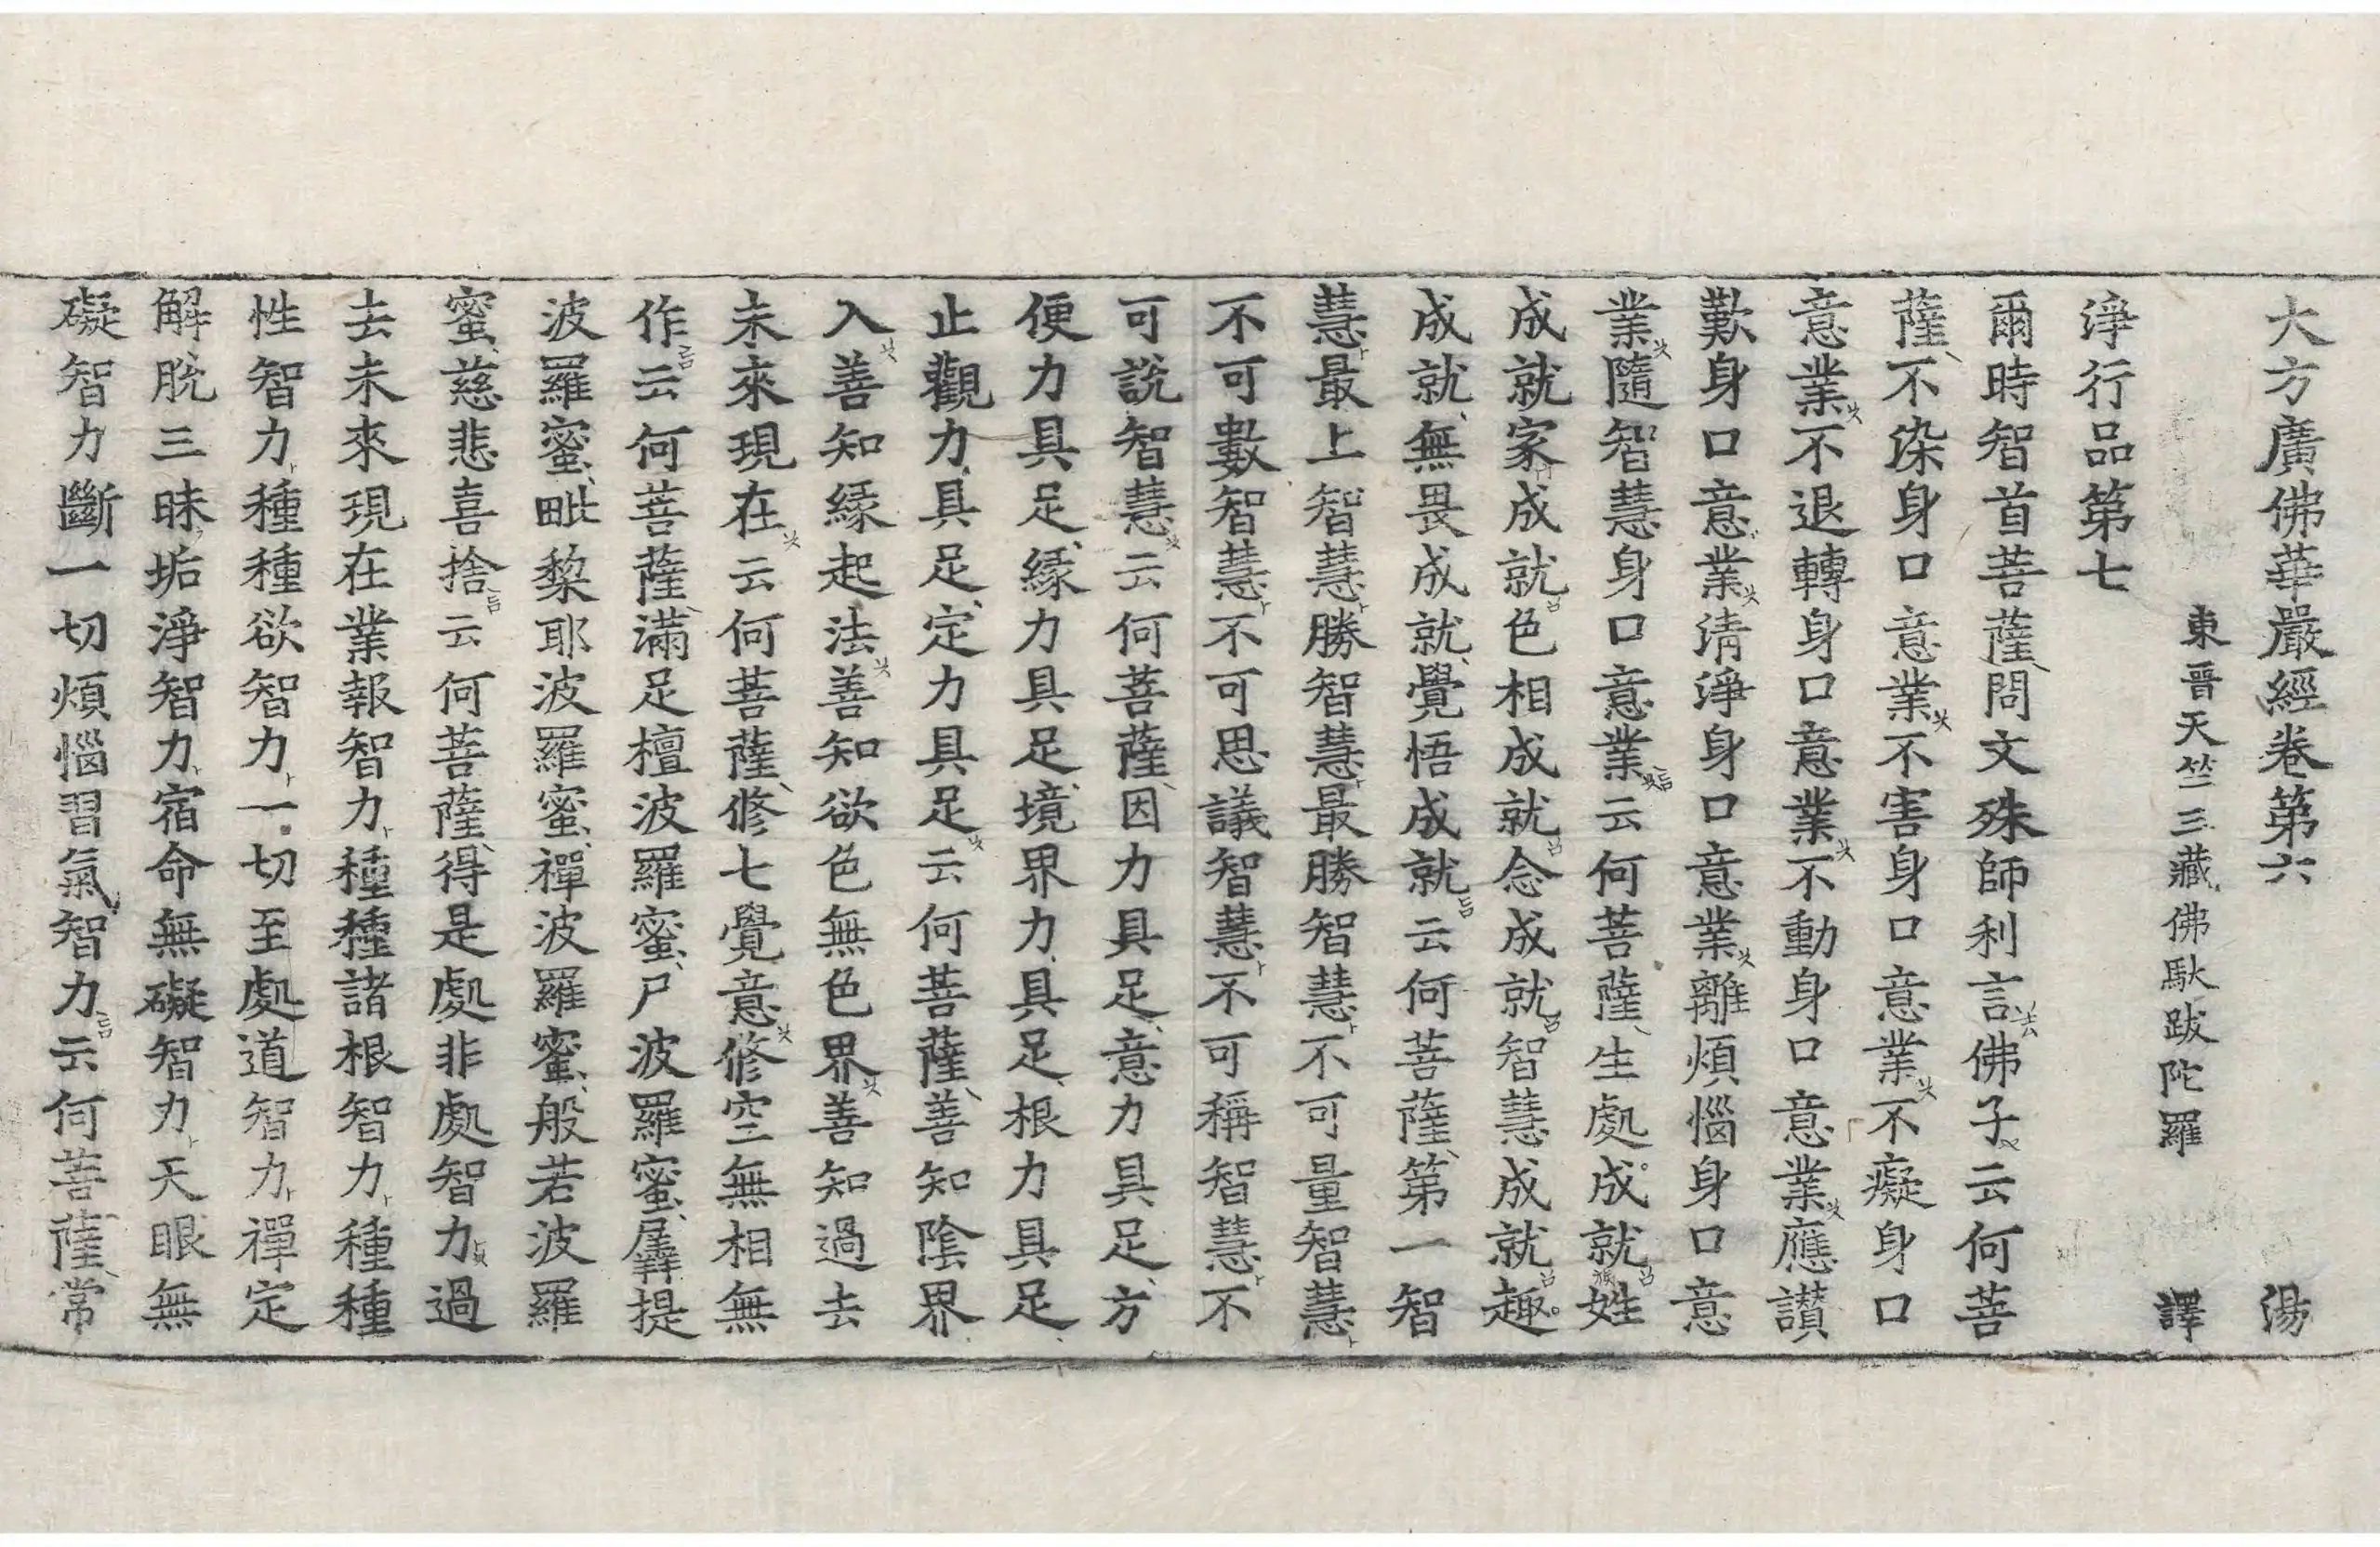 大方廣佛華嚴經卷第六 湯
東晋天竺三藏佛馱跋陀羅 譯
淨行品第七
爾時智首菩薩問文殊師利言佛子云何菩
薩不染身口意業不害身口意業不癡身口
意業不退轉身口意業不動身口意業應讃
歎身口意業清淨身口意業離煩惱身口意
業隨智慧身口意業云何菩薩生處成就姓
成就家成就色相成就念成就智慧成就趣
成就無畏成就覺悟成就云何菩薩第一智
慧最上智慧勝智慧最勝智慧不可量智慧
不可數智慧不可思議智慧不可稱智慧不
可説智慧云何菩薩因力具足意力具足方
便力具足縁力具足境界力具足根力具足
止觀力具足定力具足云何菩薩善知陰界
入善知縁起法善知欲色無色界善知過去
未來現在云何菩薩修七覺意修空無相無
作云何菩薩滿足檀波羅蜜尸波羅蜜羼提
波羅蜜毗黎耶波羅蜜禪波羅蜜般若波羅
蜜慈悲喜捨云何菩薩得是處非處智力過
去未來現在業報智力種種諸根智力種種
性智力種種欲智力一切至處道智力禪定
解脫三昧垢淨智力宿命無礙智力天眼無
礙智力斷一切煩惱習氣智力云何菩薩常